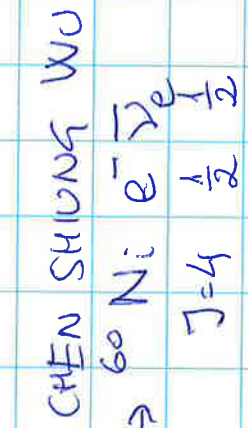 CHEN SHIUNG WU
→ ⁶⁰Ni e⁻ ν̅e
J=4 1/2 1/2